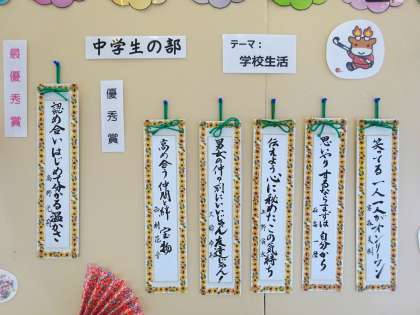 中学生の部
テーマ:
学校生活
最優秀賞
認め合いはじめて分かる温かさ
優秀賞
高め合う仲間と絆宝物
男女の仲の別にいいじゃん友達じゃん!
伝えよう心に秘めたこの気持ち
思いやりするならまずは自分から
笑ってる一人一人がオンリーワン